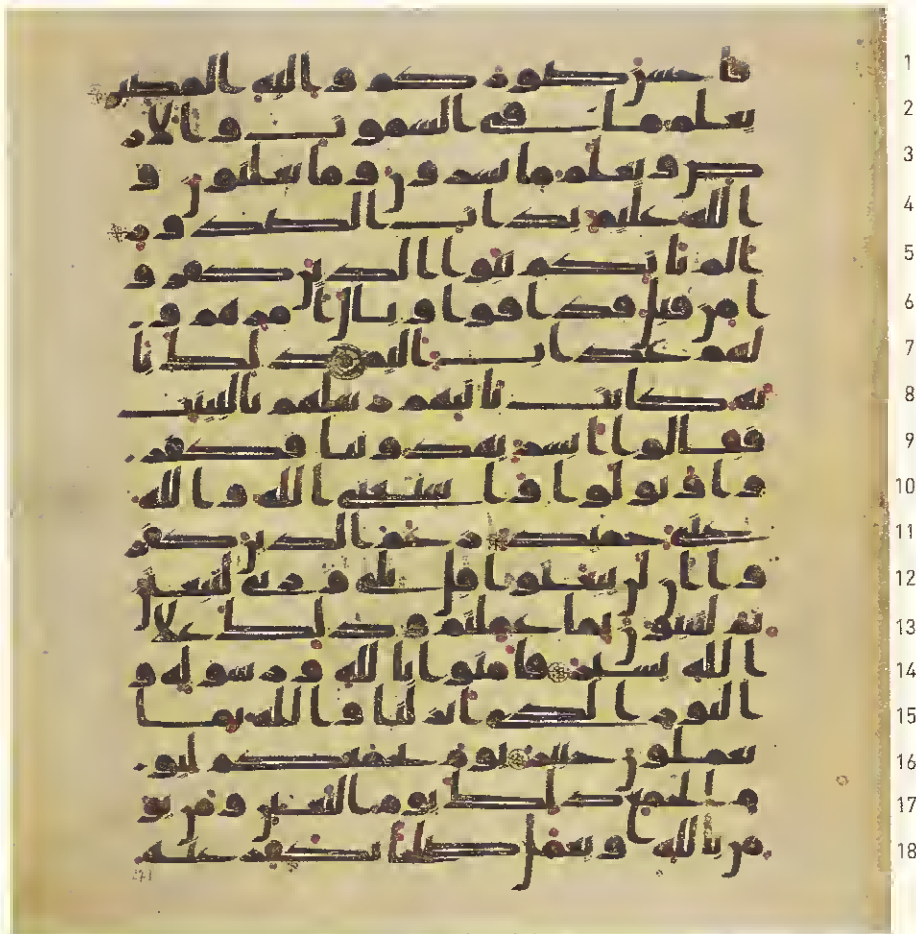 فاحسن صوركم واليه المصير 1
يعلم ما في السموت والار 2
ض ويعلم ما تسرون وما تعلنون و 3
الله عليم بذات الصدور 4
الم ياتكم نبوا الذين كفرو 5
ا من قبل فذاقوا وبال امرهم و 6
لهم عذاب اليم ذلك با 7
نه كانت تاتيهم رسلهم بالبينت 8
فقالوا ابشر يهدوننا فكفر 9
وا وتولوا واستغنى الله والله 10
غني حميد زعم الذين كفر 11
وا ان لن يبعثوا قل بلى وربي لتبعثن 12
ثم لتنبون بما عملتم وذلك علا 13
الله يسير فامنوا بالله ورسوله و 14
النور الذي انزلنا والله بما 15
تعملون خبير يوم يجمعكم ليو 16
م الجمع ذلك يوم التغابن ومن يو 17
من بالله ويعمل صلحا يكفر عنه 18